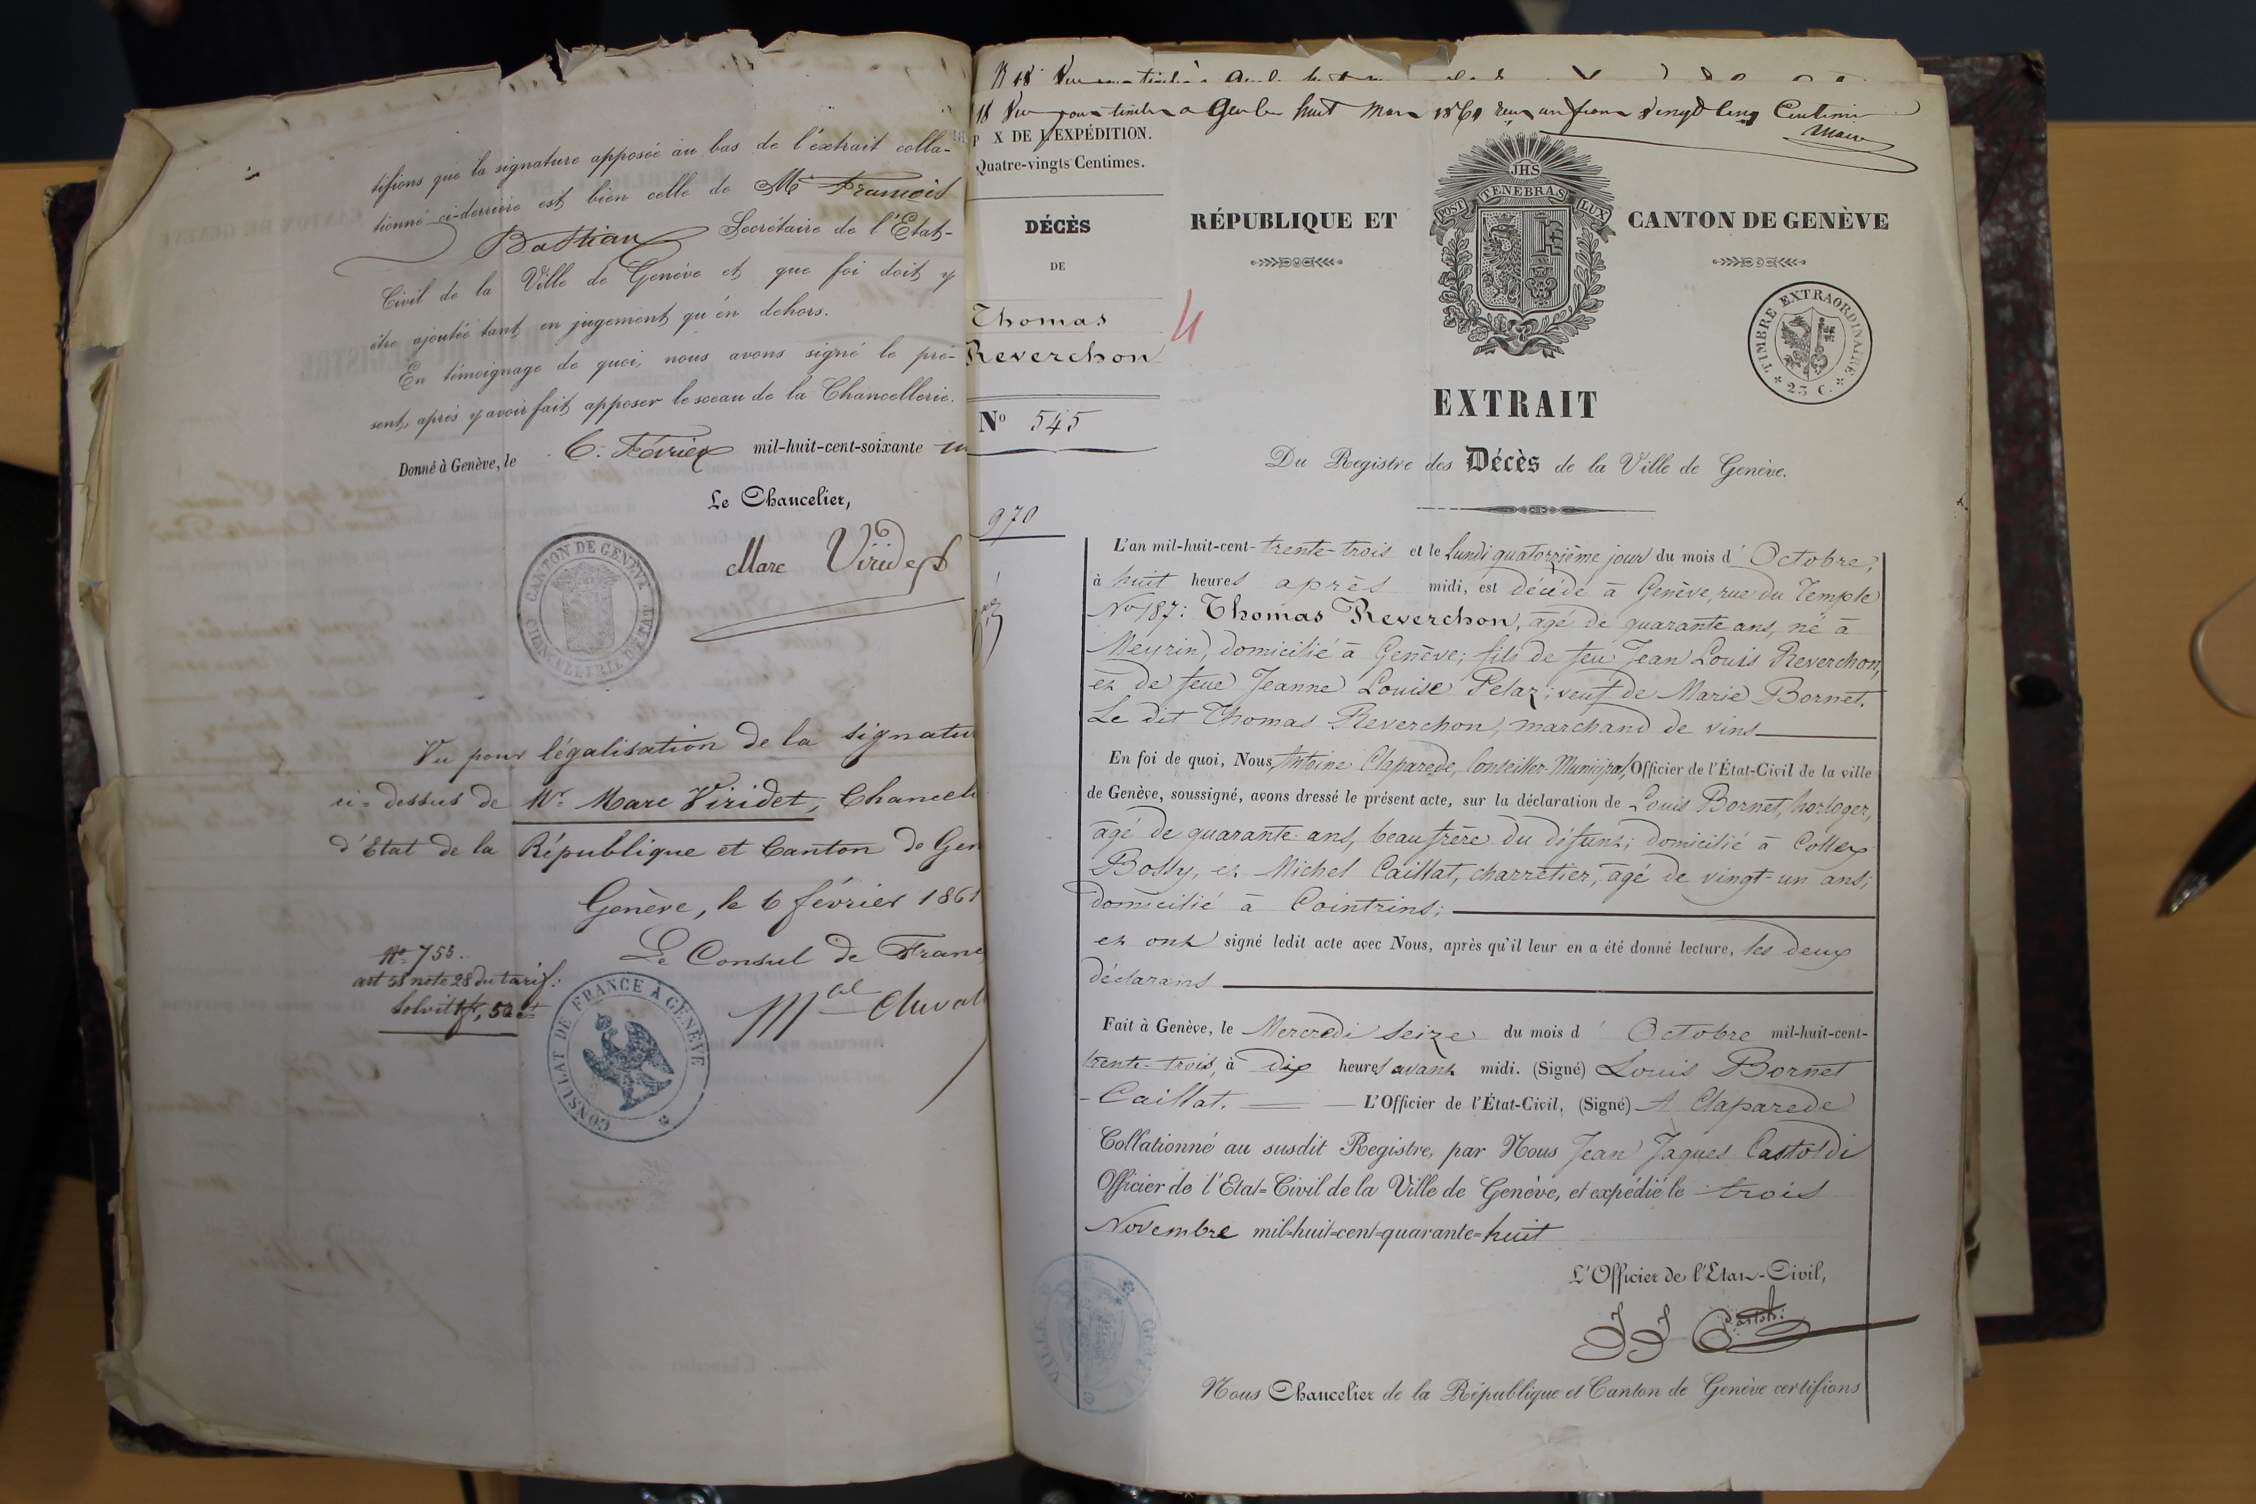 tifions que la signature apposée au bas de l'extrait colla-
tionné ci-derrière est bien celle de Mr François
Bastian Secrétaire de l'Etat-
Civil de la Ville de Genève et que foi doit y
être ajoutée tant en jugement qu'en dehors.
En témoignage de quoi, nous avons signé le pré-
sent, après y avoir fait apposer le sceau de la Chancellerie.
Donné à Genève, le 6. Février mil-huit-cent-soixante un
Le Chancelier,
Marc Viridet
CANTON DE GENÈVE
CHANCELLERIE D'ÉTAT
Vu pour légalisation de la signatu
ci-dessus de Mr. Marc Viridet, Chancel
d'Etat de la République et Canton de Gen
Genève, le 6 février 1861
Le Consul de Franc
No 753.
art 58 note 28 du tarif:
CONSULAT DE FRANCE À GENÈVE
18 Vu pour timbre a Gex le huit Mars 1861 reçu un franc vingt cinq Centimes
P X DE L'EXPÉDITION.
Quatre-vingts Centimes.
DÉCÈS
DE
Thomas
Reverchon
No 545
970
RÉPUBLIQUE ET CANTON DE GENÈVE
JHS
POST TENEBRAS LUX
TIMBRE EXTRAORDINAIRE
25 C.
EXTRAIT
Du Registre des Décès de la Ville de Genève.
L'an mil-huit-cent-trente-trois et le Lundi quatorzième jour du mois d'Octobre,
à huit heures après midi, est décédé à Genève, rue du Temple
No 187: Thomas Reverchon, âgé de quarante ans, né à
Meyrin, domicilié à Genève; fils de feu Jean Louis Reverchon,
et de feue Jeanne Louise Pelaz; veuf de Marie Bornet.
Le dit Thomas Reverchon, marchand de vins
En foi de quoi, Nous, Antoine Claparede, Conseiller Municipal, Officier de l'État-Civil de la ville
de Genève, soussigné, avons dressé le présent acte, sur la déclaration de Louis Bornet, horloger,
âgé de quarante ans, beau frère du défunt; domicilié à Collex
Bossy, et Michel Caillat, charretier, âgé de vingt-un ans;
domicilié à Cointrins;
et ont signé ledit acte avec Nous, après qu'il leur en a été donné lecture, les deux
déclarans
Fait à Genève, le Mercredi seize du mois d'Octobre mil-huit-cent-
trente-trois, à dix heures avant midi. (Signé) Louis Bornet
- Caillat. L'Officier de l'État-Civil, (Signé) A Claparede
Collationné au susdit Registre, par Nous Jean Jaques Castoldi
Officier de l'Etat=Civil de la Ville de Genève, et expédié le trois
Novembre mil=huit=cent=quarante=huit
L'Officier de l'Etat-Civil,
JJ Castoldi
VILLE GENÈVE
Nous Chancelier de la République et Canton de Genève certifions